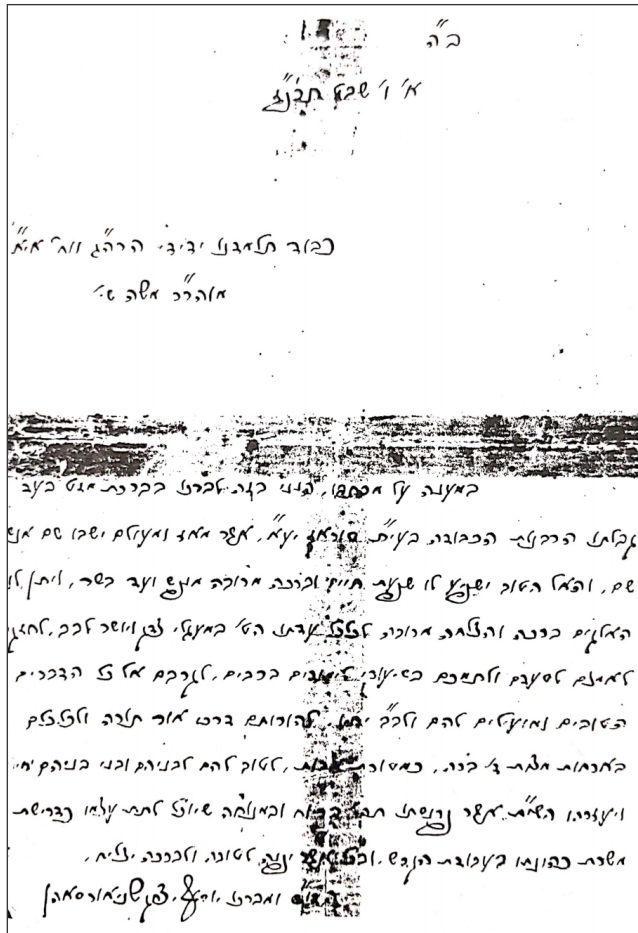 ב״ה
א׳ ו׳ שבט תרנ״ז
כבוד תלמידנו ידידי הרה״ג ווח׳ אי״א
מוהר״ר משה שי׳
במענה על מכתבו, הנני בזה לברכו בברכת מז״ט בעד
קבלתו הרבנות הכבודה בעי״ת יע״א, אשר מאז ומעולם ישבו שם אנשי
שם, והאל הטוב ישפיע לו שפעת חיים וברכה מרובה מנפש ועד בשר, ויתן לו
האלקים ברכה והצלחה מרובה לכלכל עדתו הט׳ במעגלי צדק ויושר לבב, לחזקם
לאמצם לסעדם ולתמכם בשיעורי לימודים ברבים, לקרבם אל כל הדברים
הטובים ומועילים להם ולב״ב יחיו, להורותם דרכי אור תורה ולכלכלם
בארחות מצות ד׳ ברה, כמסורת אבות, לטוב להם לבניהם ובני בניהם יחיו
ויעזרהו השי״ת אשר פרנסתו תבא בריוח ובמנוחה שיוכל לתת עצמו כדרישת
משרת כהונתו בעבודת הקדש, ובכל אשר יפנה לטובה ולברכה יצליח,
ומברכו יוסף יצחק שניאורסאהן